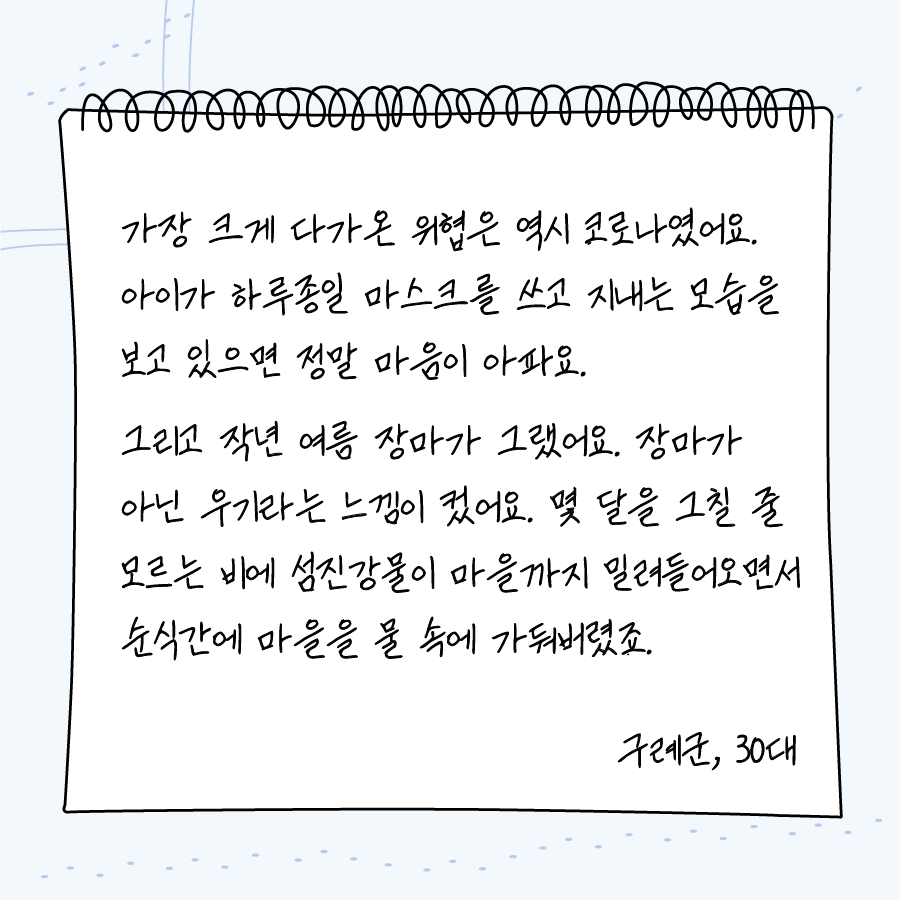 가장 크게 다가온 위협은 역시 코로나였어요.
아이가 하루종일 마스크를 쓰고 지내는 모습을
보고 있으면 정말 마음이 아파요.
그리고 작년 여름 장마가 그랬어요. 장마가
아닌 우기라는 느낌이 컸어요. 몇 달을 그칠 줄
모르는 비에 섬진강물이 마을까지 밀려들어오면서
순식간에 마을을 물 속에 가둬버렸죠.
구례군, 30대